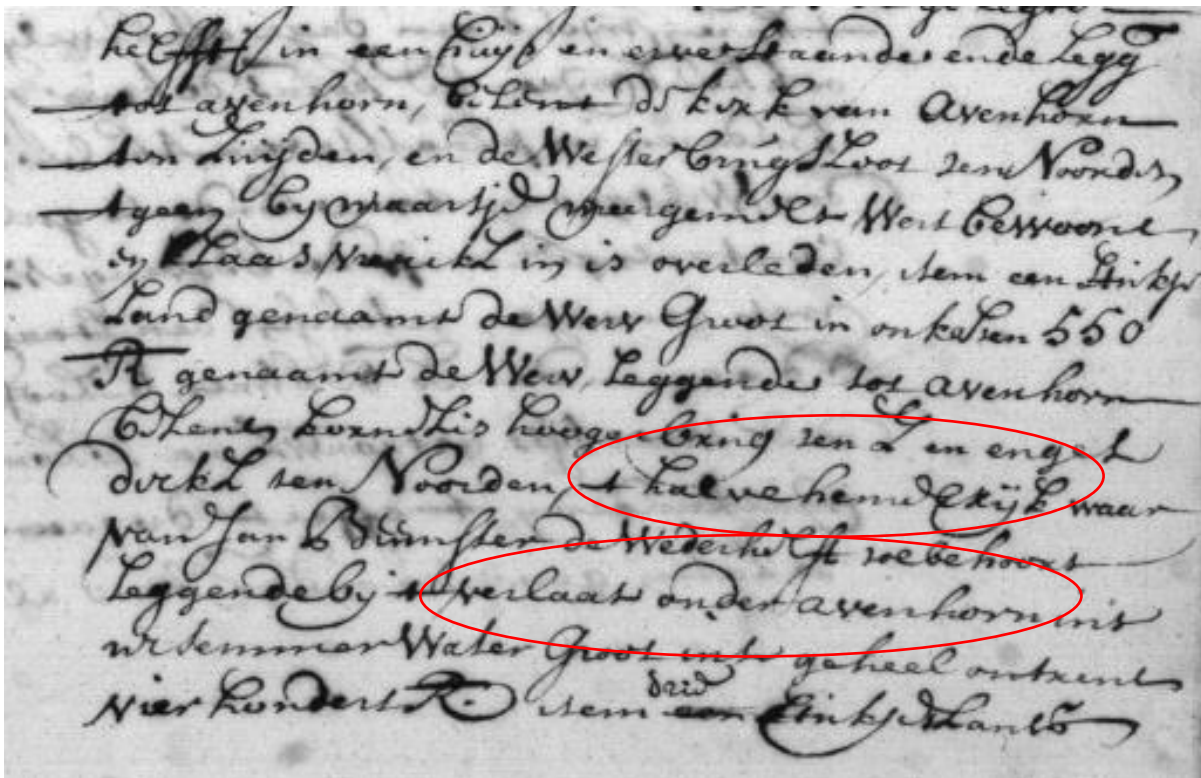 helfft in een huijs en erve staande ende legg
tot avenhorn, belent de kerk van Avenhorn
ten zuijden, en de Wester brugsloot ten Noorden,
tgeen by maartje meergemelt Wert bewoont
en Claas in is overleden, item een stukje
Land genaamt de Werv Groot in onkelsen 550
R genaamt de Werv, Leggende tot avenhorn
belent kornelis hoogerbrug ten Z en engel
dirkz ten Noorden, t halve hemdekijk waar
van Jan B dumster de Wederhelft toebehoort
Leggende bij t verlaat onder avenhorn int
ursemmer Water Groot int geheel ontrent
vier hondert R. item drie stukjes Lant